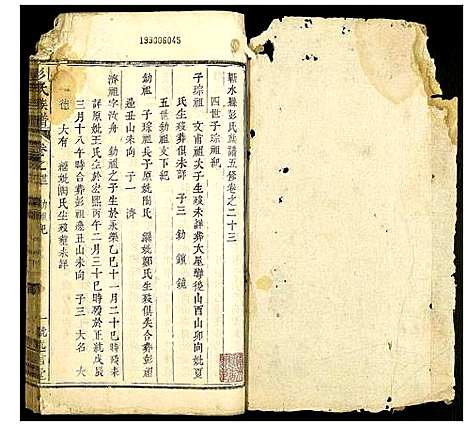 193006045
蘄水縣彭氏族譜五修卷之二十三
四世子琮祖紀
子琮祖 文甫祖次子生歿未詳葬大屋灣後山酉山卯向妣夏
氏生歿葬俱未詳 子三 勍 鎖 鏡
五世勍祖支下紀
勍祖 子琮祖長子原妣陶氏 繼妣鄭氏生歿俱失合葬彭祖
邊丑山未向 子一 濟
濟祖字汝舟 勍祖之子生於永樂乙巳十一月二十巳時歿未
詳原妣王氏生於宏熙丙午二月三十巳時歿於正統戊辰
三月十八午時合葬彭祖邊丑山未向 子三 大名 大
德 大有 繼妣陶氏生歿葬未詳
彭氏族譜 卷之二十三 勍祖紀